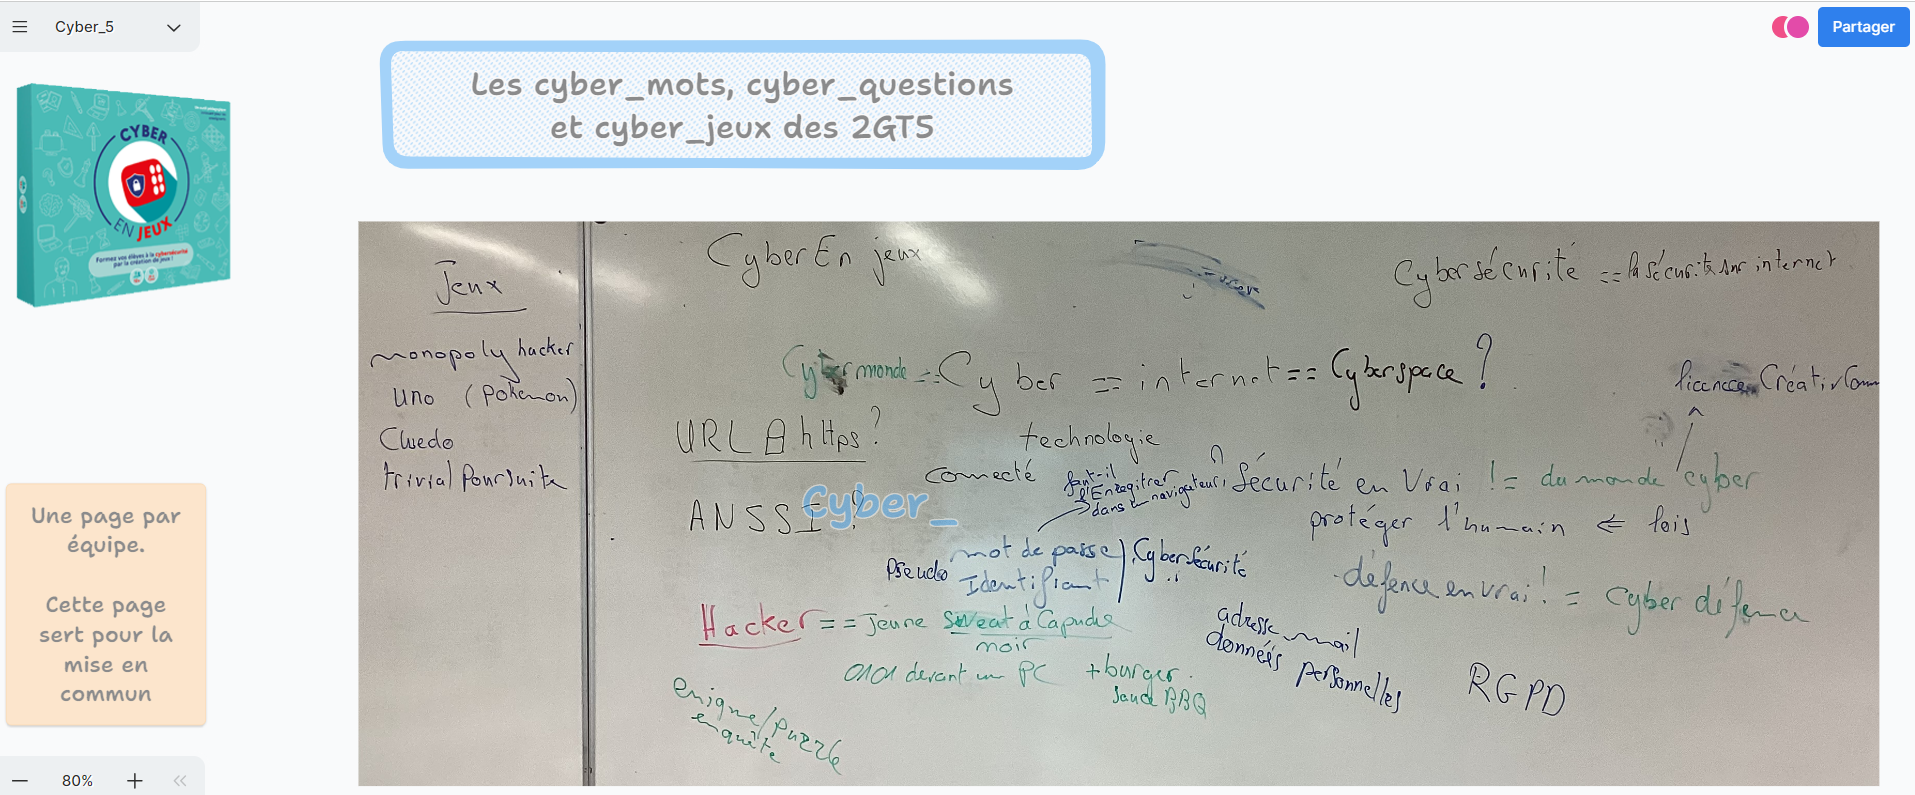 Cyber_5
Partager
Les cyber_mots, cyber_questions
et cyber_jeux des 2GT5
CYBER
EN JEUX
Formez vos élèves à la cybersécurité
par la création de jeux !
Une page par
équipe.
Cette page
sert pour la
mise en
commun
80%
Jeux
monopoly hacker
uno (Pokemon)
Cluedo
trivial Poursuite
CyberEn jeux
Cybersécurité == la sécurité sur internet
Cyber monde == Cyber == internet == Cyberspace ?
licence Créativ Comm
URL https ?
technologie
connecté
faut-il
l'Enregitrer
dans un navigateur ?
Sécurité en Vrai != du monde cyber
ANSSI ?
Cyber_
protéger l'humain <= lois
Pseudo
mot de passe
Identifiant
Cybersécurité
défence en vrai ! = Cyber défence
Hacker == jeune Sweat à Capuche
noir
0101 devant un PC + burger.
Sauce BBQ
adresse mail
données personnelles
RGPD
enigme/puzzle
enquête